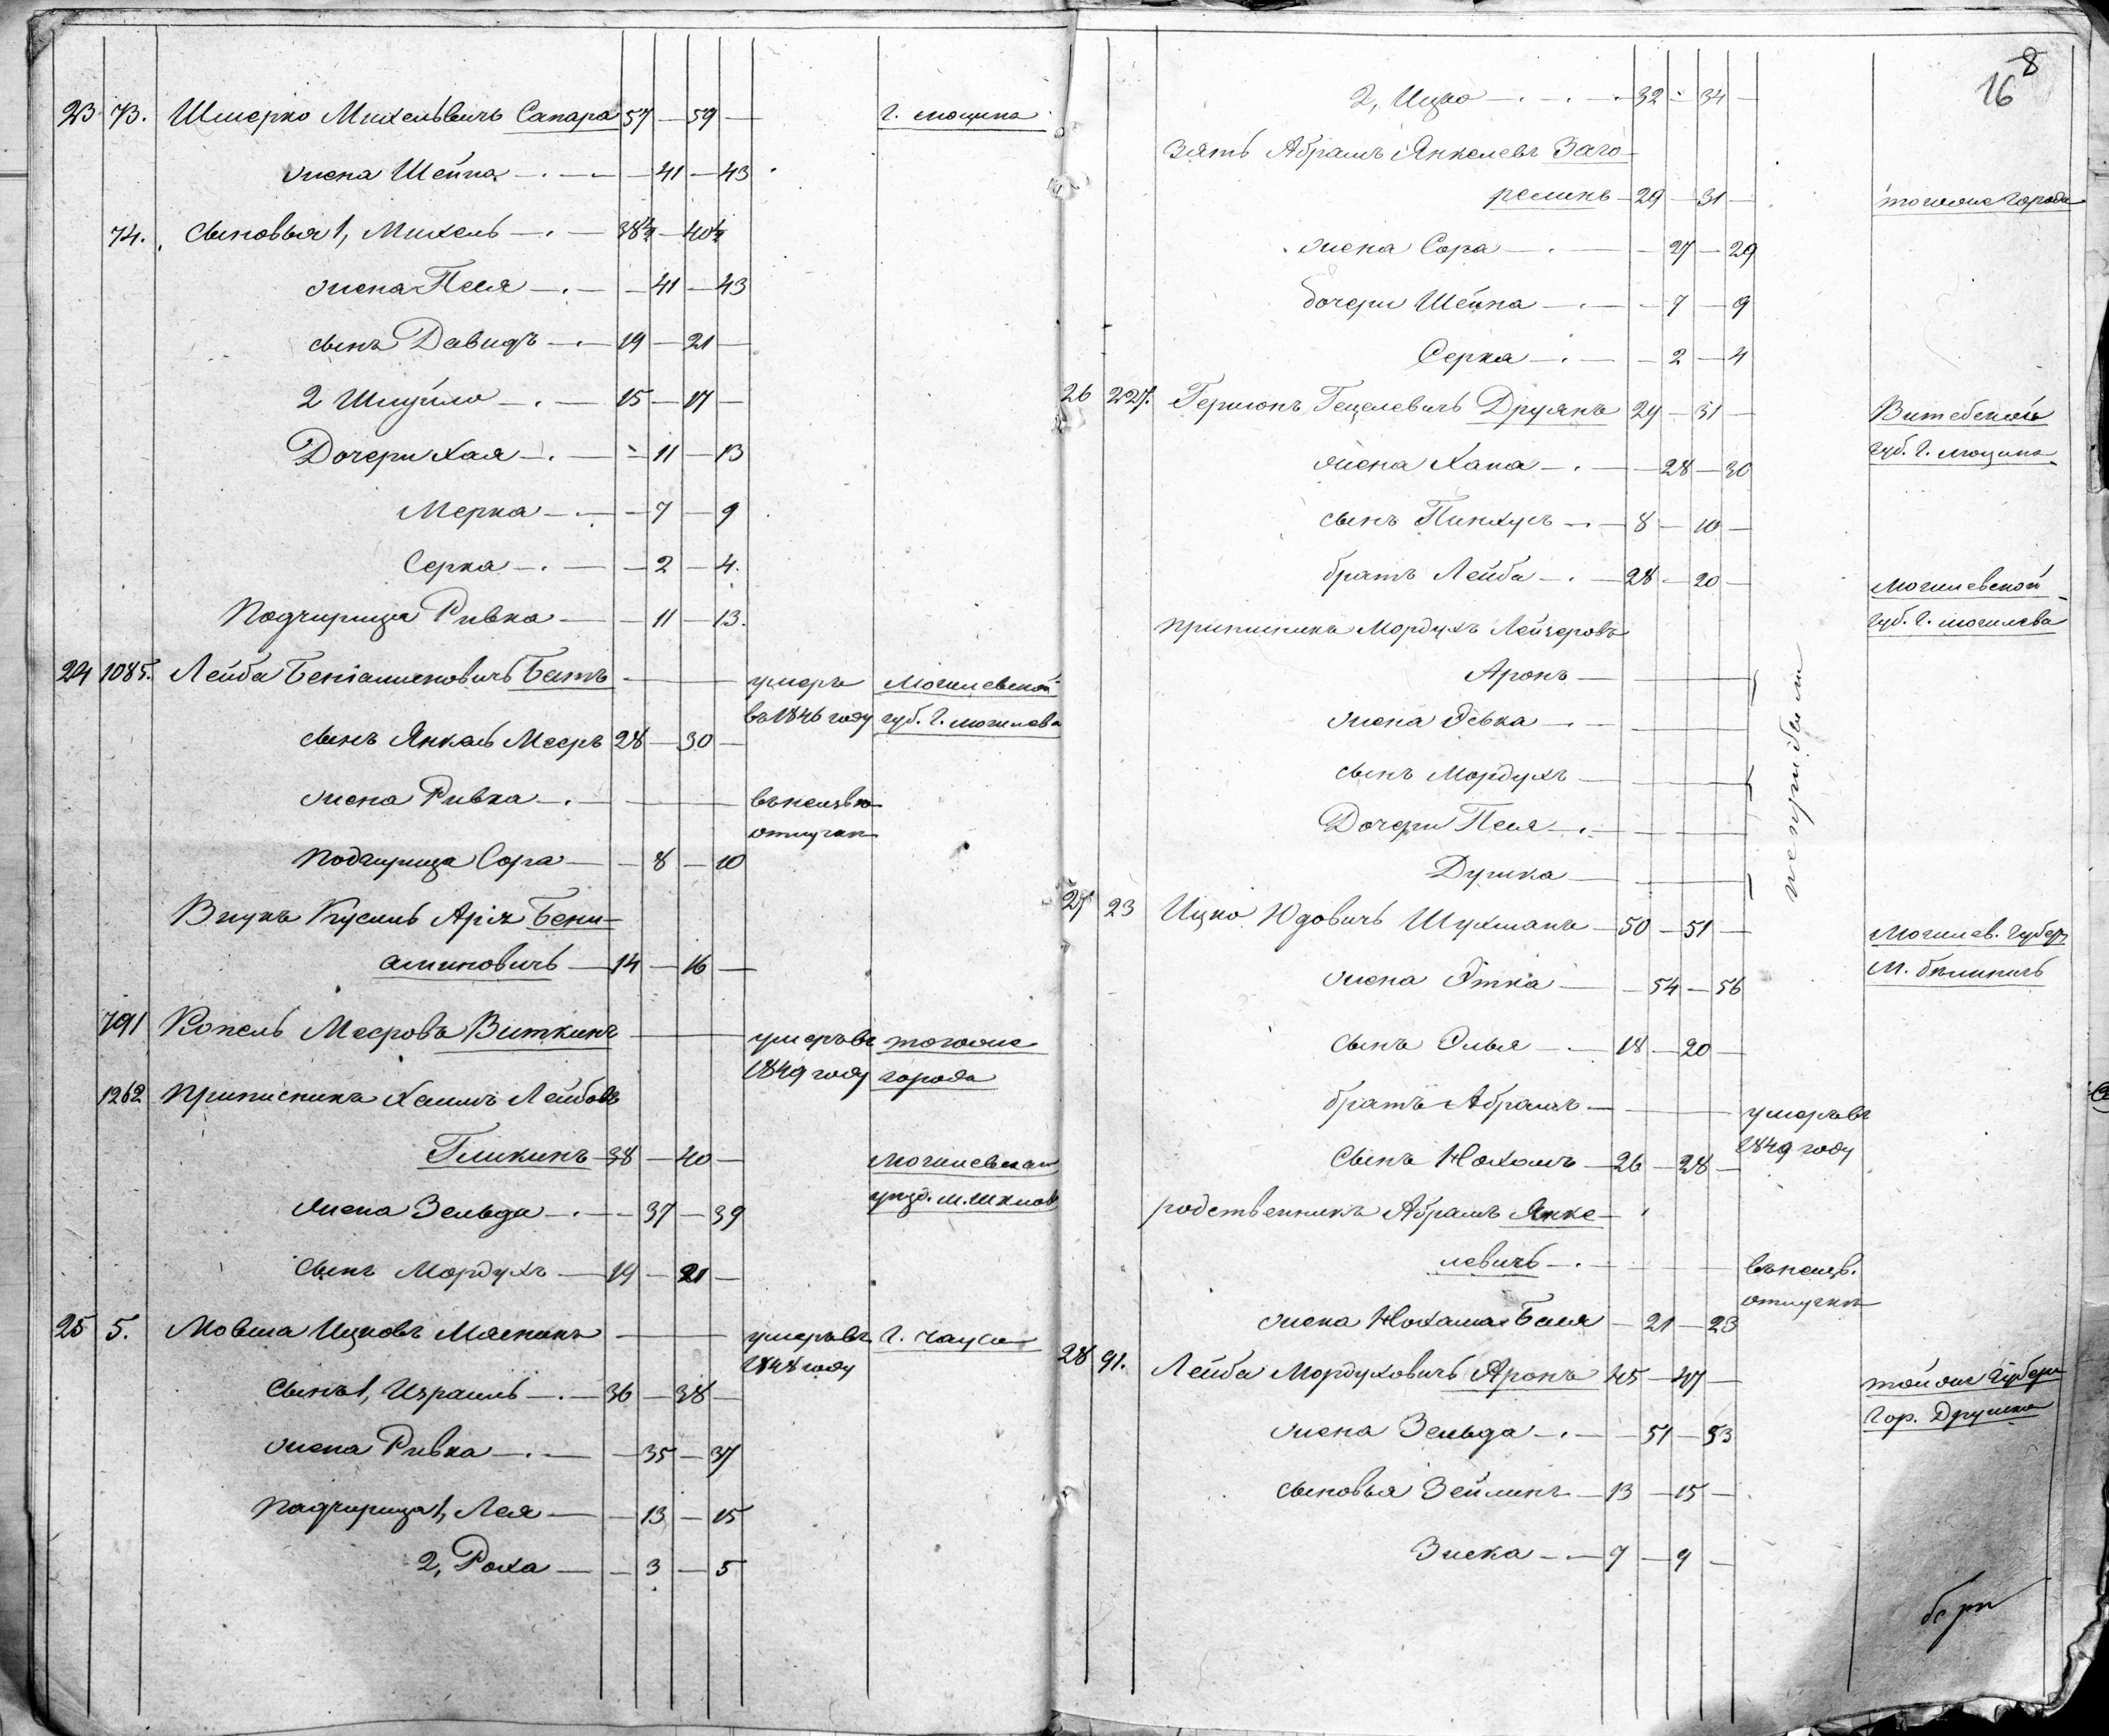 23 73. Шмерко Михелевичъ Сапара 57 — 59 — г. Люцина
жена Шейна — 41 — 43
74. сыновья 1, Михель — 38½ — 40½
жена Песя — 41 — 43
сынъ Давидъ — 19 — 21 —
2 Шмуйло — 15 — 17 —
Дочери Хая — 11 — 13
Мерка — 7 — 9
Серка — 2 — 4.
Подчирица Ривка — 11 — 13.
24 1085. Лейба Беніаминовичъ Батъ — умеръ Могилевской
въ 1846 году губ. г. Могилева
сынъ Янкель Мееръ 28 — 30 —
жена Ривка — въ неизвѣ
отлучкѣ
подчирица Сора — 8 — 10
Внукъ Кусиль Аріа Бени-
аминовичъ — 14 — 16 —
791 Копель Меровъ Виткинъ — умеръ въ тогоже
1849 году города
1262 приписникъ Хаимъ Лейбовъ
Гликинъ — 38 — 40 — Могилевска
уѣзд. м. Шклов
жена Зельда — 37 — 39
сынъ Мордухъ — 19 — 21 —
25 5. Мовша Ицковъ Маснинъ — умеръ въ г. Чаусы
1848 году
сынъ 1, Израиль — 36 — 38 —
жена Ривка — 35 — 37
падчирица 1, Лея — 13 — 15
2, Роха — 3 — 5
8
16
2, Ицко — 32 — 34 —
Зять Абрамъ Янкелевъ Заго-
релинъ — 29 — 31 — тогоже города
жена Сора — 27 — 29
дочери Шейна — 7 — 9
Серка — 2 — 4
26 227. Гершонъ Гецелевичъ Друянъ 29 — 31 — Витебской
губ. г. Люцина
жена Хана — 28 — 30
сынъ Пинхусъ — 8 — 10 —
братъ Лейба — 28 — 20 — Могилевской
губ. г. Могилева
приписникъ Мордухъ Лейзеровъ
Аронъ —
жена Ривка —
сынъ Мордухъ —
Дочери Песя —
Душка —
не прибыли
27 23 Ицко Юдовичъ Шухманъ — 50 — 51 — Могилев. губер
м. Бѣлыничъ
жена Этка — 54 — 56
сынъ Элья — 18 — 20 —
братъ Абрамъ — умеръ въ
1849 году
сынъ Нохомъ — 26 — 28 —
родственникъ Абрамъ Янке-
левичъ — въ неизв.
отлучкѣ
жена Нохама Бася — 21 — 23
28 91. Лейба Мордуховичъ Аронъ 45 — 47 — той же губер
гор. Друцка
жена Зельда — 51 — 53
сыновья Зейликъ — 13 — 15 —
Зиска — 7 — 9 —